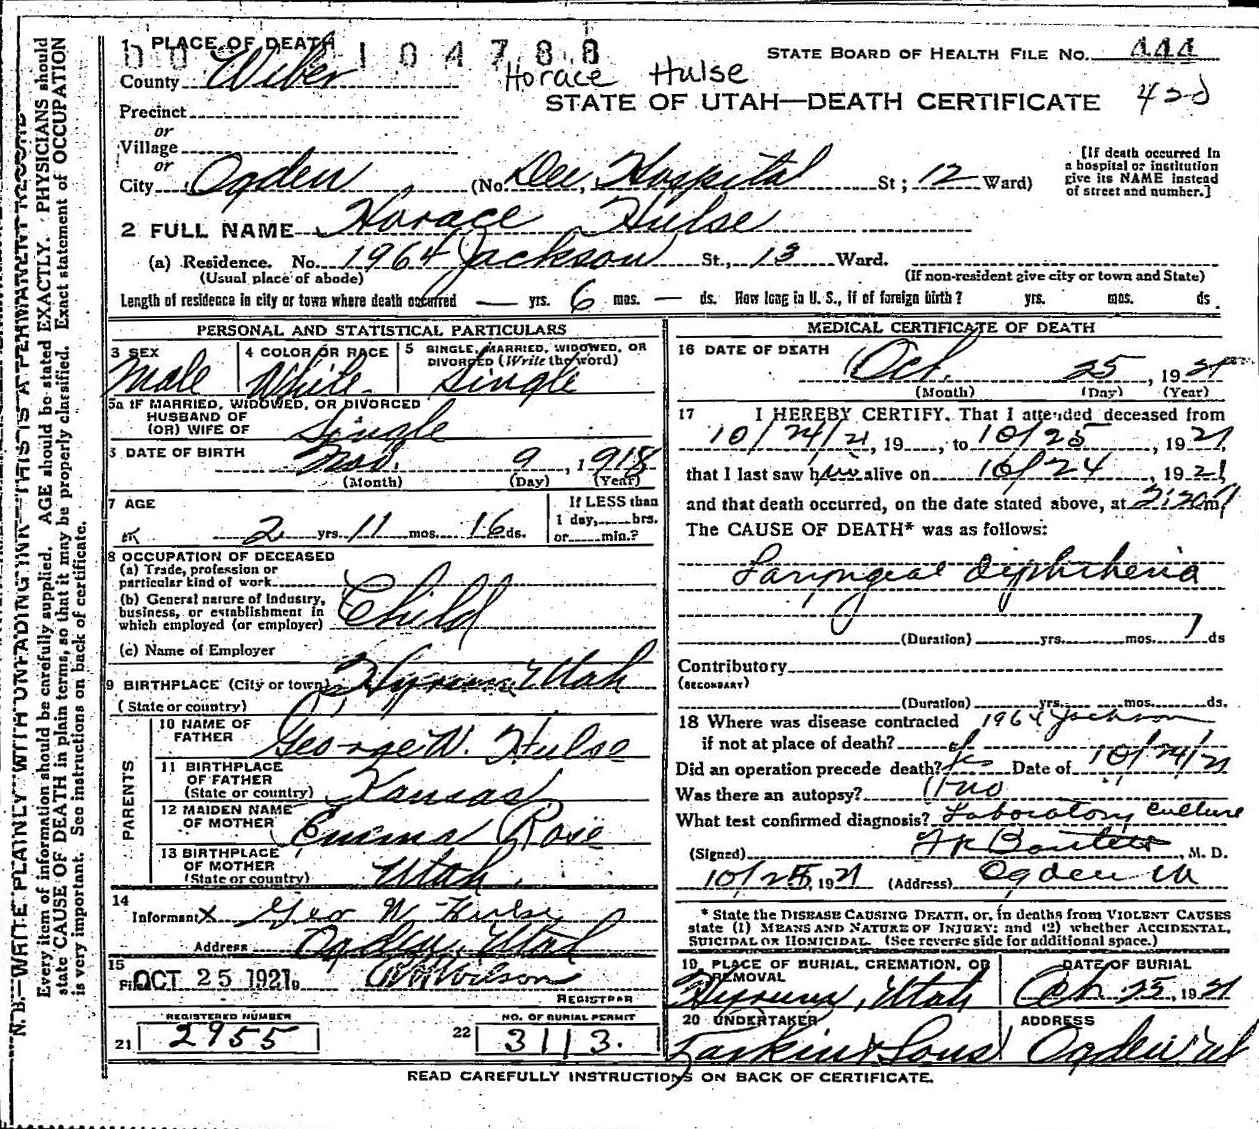 N. B.—WRITE PLAINLY WITH UNFADING INK—THIS IS A PERMANENT RECORD
Every item of information should be carefully supplied. AGE should be stated EXACTLY. PHYSICIANS should
state CAUSE OF DEATH in plain terms, so that it may be properly classified. Exact statement of OCCUPATION
is very important. See instructions on back of certificate.
1 PLACE OF DEATH 104788
STATE BOARD OF HEALTH FILE NO. 444
County Weber
Horace Hulse
STATE OF UTAH—DEATH CERTIFICATE
Precinct
or
Village
or
City Ogden (No. Dee Hospital St; 12 Ward)
[If death occurred in
a hospital or institution
give its NAME instead
of street and number.]
2 FULL NAME Horace Hulse
(a) Residence. No. 1964 Jackson St., 13 Ward.
(Usual place of abode) (If non-resident give city or town and State)
Length of residence in city or town where death occurred — yrs. 6 mos. — ds. How long in U. S., if of foreign birth? yrs. mos. ds.
PERSONAL AND STATISTICAL PARTICULARS
3 SEX 4 COLOR OR RACE 5 SINGLE, MARRIED, WIDOWED, OR
DIVORCED (Write the word)
Male White Single
5a IF MARRIED, WIDOWED, OR DIVORCED
HUSBAND OF
(OR) WIFE OF Single
DATE OF BIRTH Nov. 9, 1918
(Month) (Day) (Year)
7 AGE If LESS than
1 day, hrs.
2 yrs. 11 mos. 16 ds. or min.?
8 OCCUPATION OF DECEASED
(a) Trade, profession or
particular kind of work
(b) General nature of industry,
business, or establishment in
which employed (or employer) Child
(c) Name of Employer
9 BIRTHPLACE (City or town) Hyrum, Utah
(State or country)
PARENTS
10 NAME OF
FATHER George W. Hulse
11 BIRTHPLACE
OF FATHER
(State or country) Kansas
12 MAIDEN NAME
OF MOTHER Emma Rose
13 BIRTHPLACE
OF MOTHER
(State or country) Utah
14
Informant X Geo W Hulse
Address Ogden, Utah
15
OCT 25 1921 Wilson
REGISTRAR
REGISTERED NUMBER
21 2955
NO. OF BURIAL PERMIT
22 3113.
MEDICAL CERTIFICATE OF DEATH
16 DATE OF DEATH
Oct. 25, 1921
(Month) (Day) (Year)
17 I HEREBY CERTIFY, That I attended deceased from
10/24/21, 19, to 10/25, 1921,
that I last saw him alive on 10/24, 1921,
and that death occurred, on the date stated above, at 2:20 m
The CAUSE OF DEATH* was as follows:
Laryngeal diphtheria
(Duration) yrs. mos. 1 ds
Contributory
(SECONDARY)
(Duration) yrs. mos. ds.
18 Where was disease contracted 1964 Jackson
if not at place of death?
Did an operation precede death? yes Date of 10/24/21
Was there an autopsy? no
What test confirmed diagnosis? Laboratory culture
(Signed) M. D.
10/25, 1921 (Address) Ogden
* State the DISEASE CAUSING DEATH, or, in deaths from VIOLENT CAUSES
state (1) MEANS AND NATURE OF INJURY; and (2) whether ACCIDENTAL,
SUICIDAL OR HOMICIDAL. (See reverse side for additional space.)
19 PLACE OF BURIAL, CREMATION, OR
REMOVAL DATE OF BURIAL
Hyrum, Utah Oct 25, 1921
20 UNDERTAKER ADDRESS
Larkin & Sons Ogden Ut
READ CAREFULLY INSTRUCTIONS ON BACK OF CERTIFICATE.